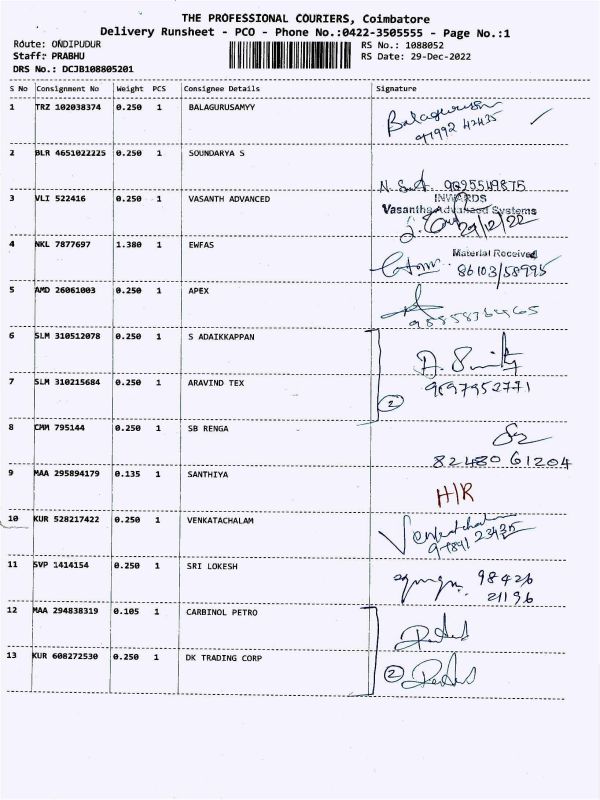 THE PROFESSIONAL COURIERS, Coimbatore
Delivery Runsheet - PCO - Phone No.:0422-3505555 - Page No.:1
Route: ONDIPUDUR RS No.: 1088052
Staff: PRABHU RS Date: 29-Dec-2022
DRS No.: DCJB108805201
S No Consignment No Weight PCS Consignee Details Signature
1 TRZ 102038374 0.250 1 BALAGURUSAMYY
2 BLR 4651022225 0.250 1 SOUNDARYA S
9025549875
3 VLI 522416 0.250 1 VASANTH ADVANCED INWARDS
Vasantha Advanced Systems
29/12/22
4 NKL 7877697 1.380 1 EWFAS Material Received
86103/58995
5 AMD 26061003 0.250 1 APEX
6 SLM 310512078 0.250 1 S ADAIKKAPPAN
7 SLM 310215684 0.250 1 ARAVIND TEX 9697952771
2
8 CMM 795144 0.250 1 SB RENGA
82480 61204
9 MAA 295894179 0.135 1 SANTHIYA
H/R
10 KUR 528217422 0.250 1 VENKATACHALAM
11 SVP 1414154 0.250 1 SRI LOKESH 98426
21196
12 MAA 294838319 0.105 1 CARBINOL PETRO
13 KUR 608272530 0.250 1 DK TRADING CORP 2